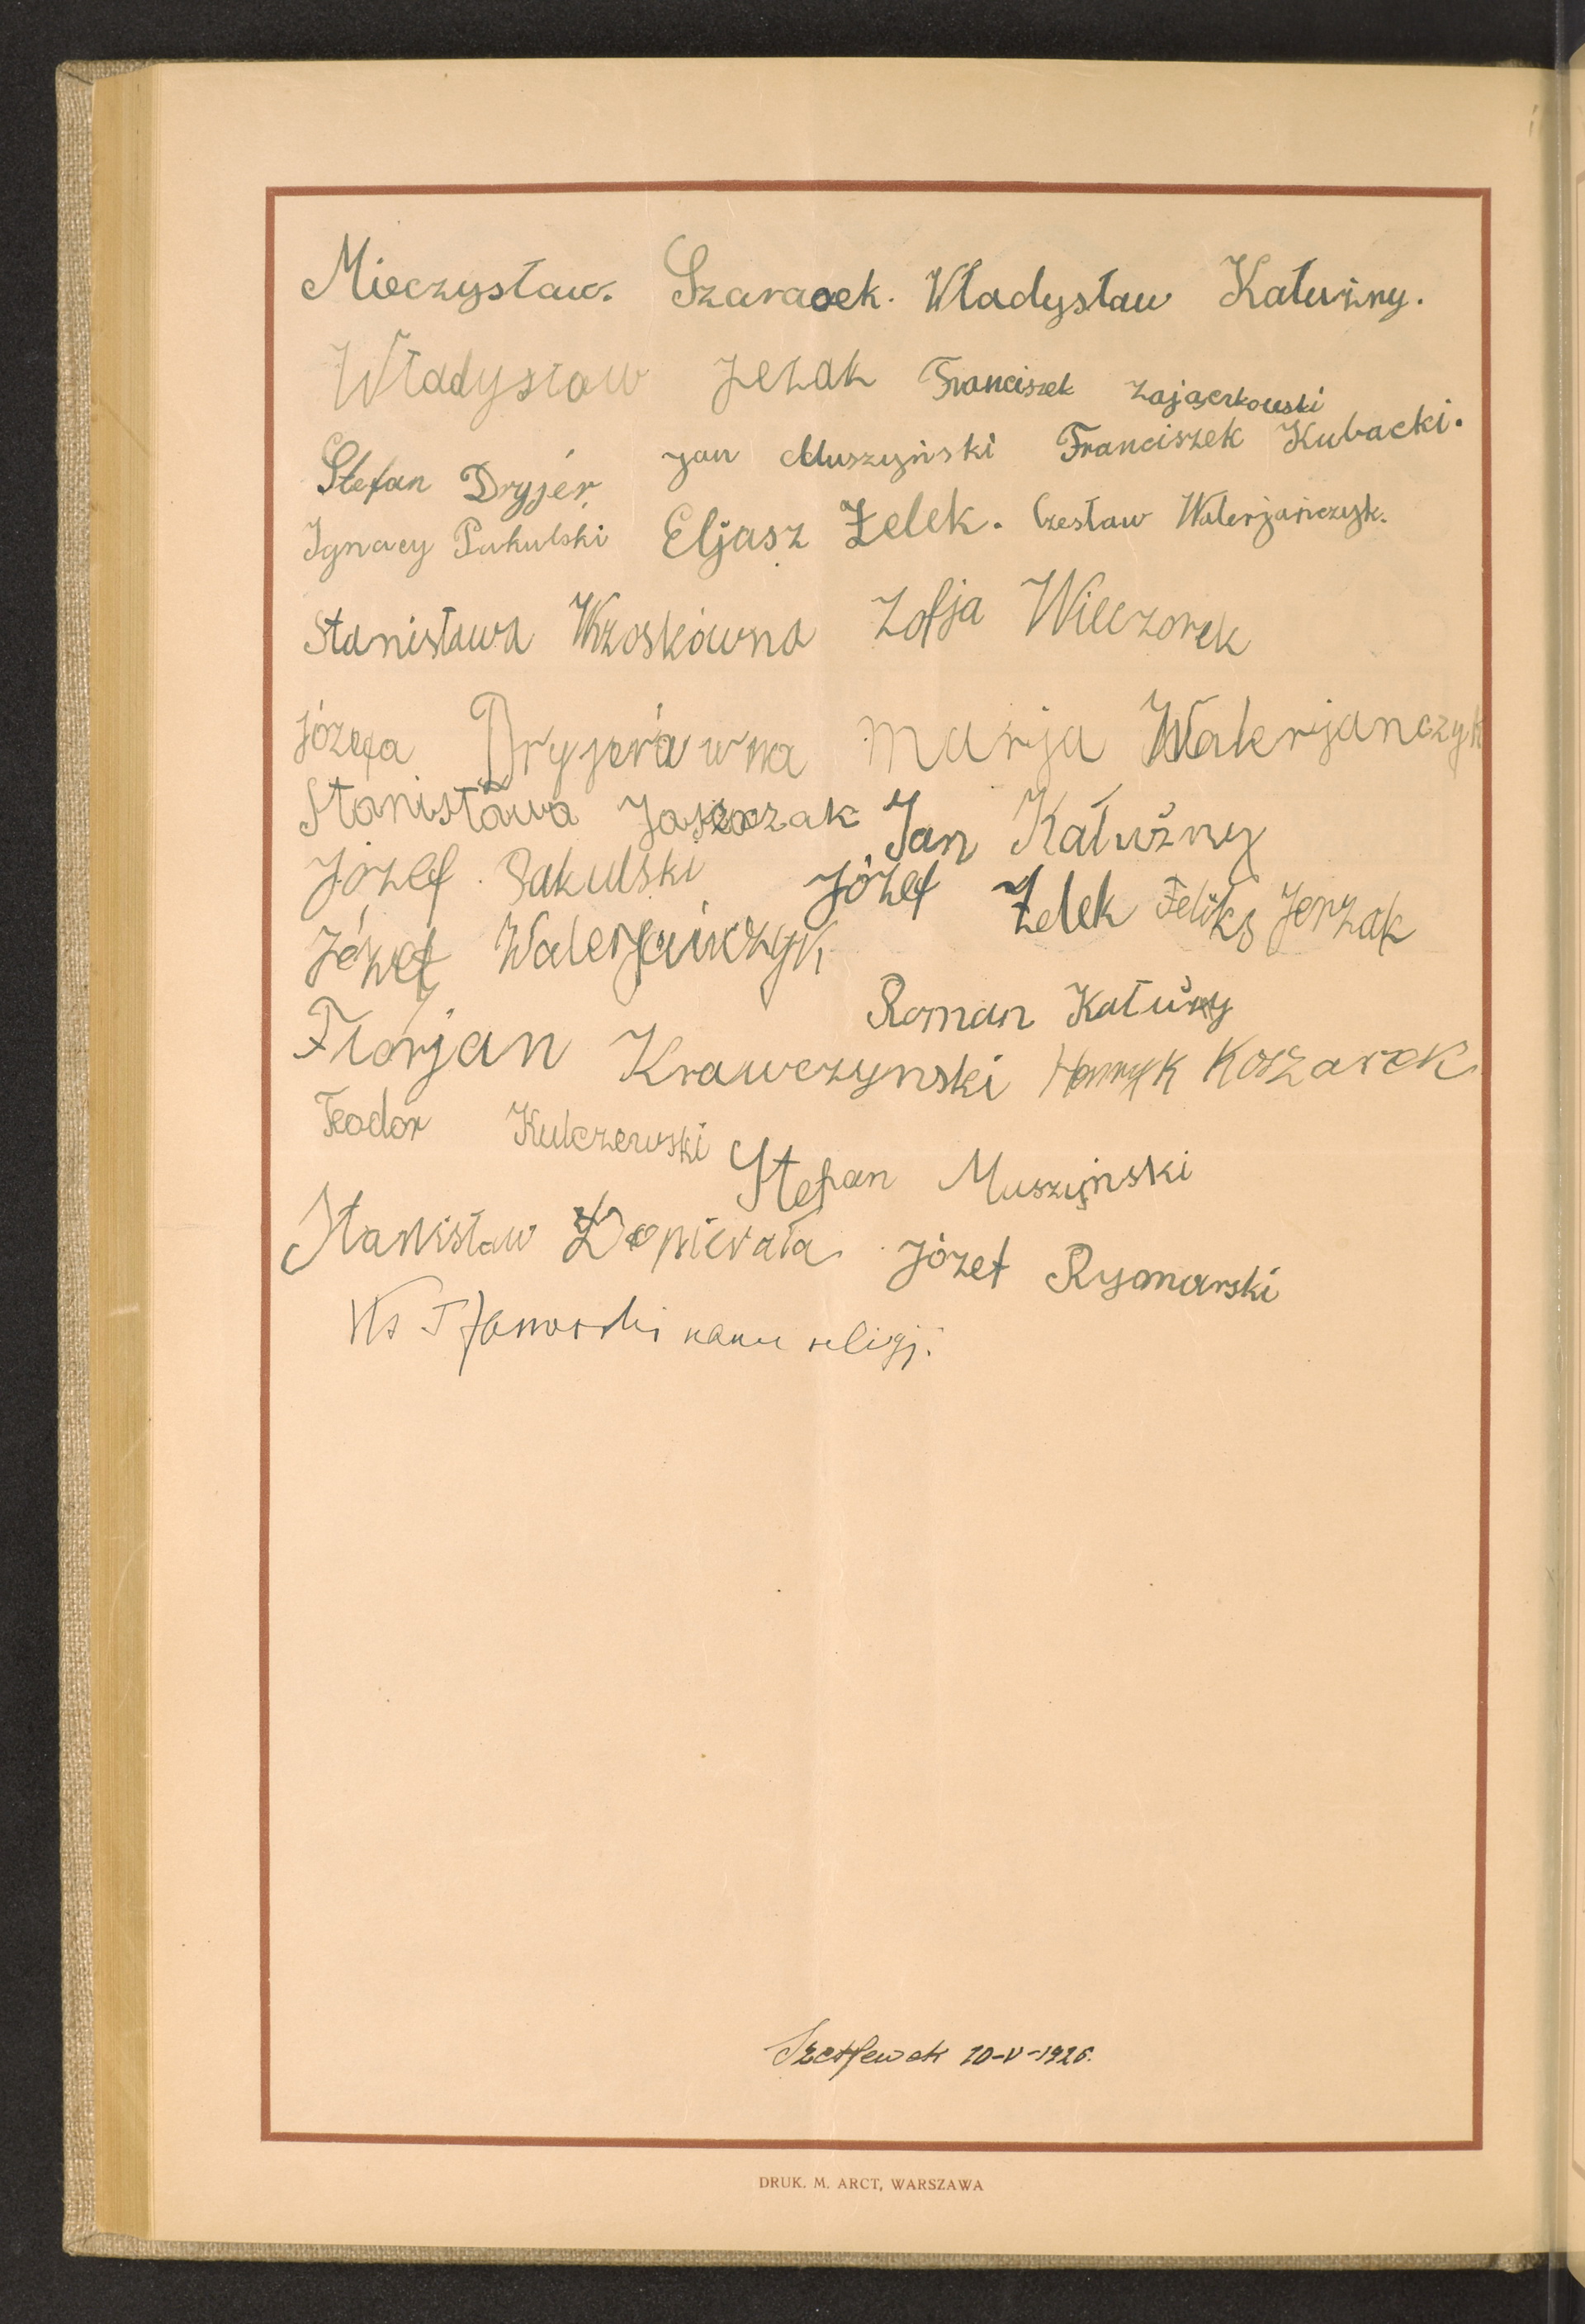 Mieczysław. Szaraoek. Władysław Kałużny.
Władysław Jezak Franciszek Zajączkowski
Stefan Dryjer Jan Muszyński Franciszek Kubacki.
Ignacy Pakulski Eljasz Żelek. Czesław Walerjańczyk.
Stanisława Wzoskówna Zofja Wieczorek
Józefa Dryjerówna Marja Walerjanczyk
Stanisława Jan Kałużny
Józef Pakulski Józef Żelek Feliks Jerzak
Józef Walerjańczyk
Roman Kałużny
Florjan Krawczynski Henryk Koszarek
Teodor Kulczewski Stefan Muszyński
Stanisław Dopierała Józef Rymarski
Ks J religji.
Szetlewek 20-V-1926.
DRUK. M. ARCT, WARSZAWA